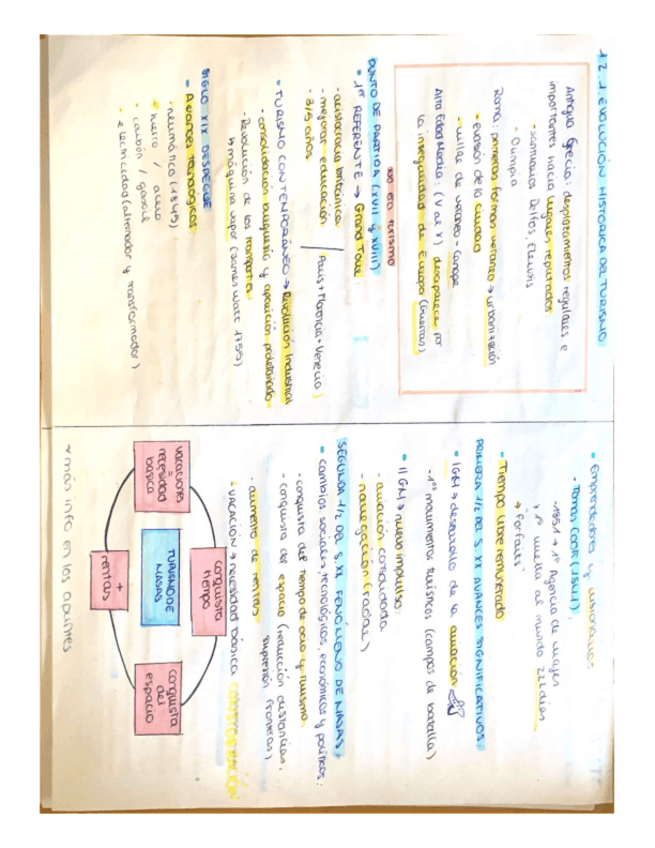 1.2.1 EVOLUCIÓN HISTÓRICA DEL TURISMO
Antigua Grecia: desplazamientos regulares e
importantes hacia lugares reputados
- santuarios Delfos, Eleusis
- Olimpia
Roma: primeras formas veraneo → urbanización
- evasión de la ciudad
- villae de veraneo - Canope
Alta Edad Media: (V al X) desaparece por
la inseguridad de Europa (Guerras)
no era turismo
PUNTO DE PARTIDA (XVII y XVIII)
• 1er REFERENTE → Grand Tour
- aristocracia británica
- mejorar educación
- 3/5 años
París + Florencia + Venecia
• TURISMO CONTEMPORÁNEO → Revolución Industrial
- consolidación burguesía y aparición proletariado
- Revolución de los transportes
↳ máquina vapor (James Watt 1755)
SIGLO XIX DESPEGUE
• Avances tecnológicos
- neumático (1845)
- hierro / acero
- carbón / gasoil
- electricidad (alternador y transformador)
• Emprendedores y visionarios
- Tomas Cook (1841):
- 1851 → 1ª Agencia de viajes
→ 1ª vuelta al mundo 222 días
→ "Forfaits"
• Tiempo libre remunerado
PRIMERA 1/2 DEL S. XX AVANCES SIGNIFICATIVOS:
• I GM → desarrollo de la aviación
- 1os movimientos turísticos (campos de batalla)
• II GM → nuevo impulso:
- aviación consolidada
- navegación (radar)
SEGUNDA 1/2 DEL S. XX FENÓMENO DE MASAS:
• cambios sociales, tecnológicos, económicos y políticos:
- conquista del tiempo de ocio y turismo.
- conquista del espacio (reducción distancias,
supresión fronteras)
- aumento de rentas
- vacación → necesidad básica
vacaciones
=
necesidad
básica
conquista
tiempo
TURISMO DE
MASAS
+
rentas
conquista
del
espacio
* más info en los apuntes